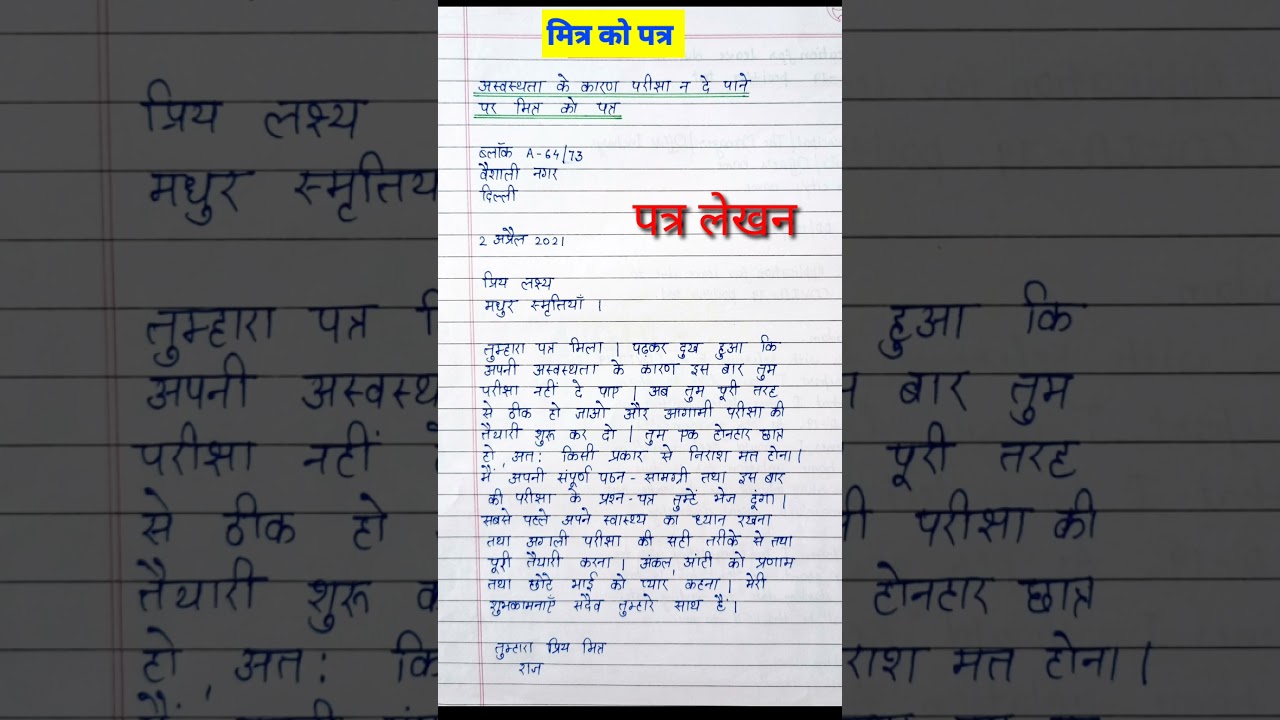 मित्र को पत्र
अस्वस्थता के कारण परीक्षा न दे पाने
पर मित्र को पत्र
ब्लॉक A-64/73
वैशाली नगर
दिल्ली
पत्र लेखन
2 अप्रैल 2021
प्रिय लक्ष्य
मधुर स्मृतियाँ ।
तुम्हारा पत्र मिला । पढ़कर दुख हुआ कि
अपनी अस्वस्थता के कारण इस बार तुम
परीक्षा नहीं दे पाए । अब तुम पूरी तरह
से ठीक हो जाओ और आगामी परीक्षा की
तैयारी शुरू कर दो । तुम एक होनहार छात्र
हो, अतः किसी प्रकार से निराश मत होना ।
मैं अपनी संपूर्ण पठन-सामग्री तथा इस बार
की परीक्षा के प्रश्न-पत्र तुम्हें भेज दूंगा ।
सबसे पहले अपने स्वास्थ्य का ध्यान रखना
तथा अगली परीक्षा की सही तरीके से तथा
पूरी तैयारी करना । अंकल, आंटी को प्रणाम
तथा छोटे भाई को प्यार कहना । मेरी
शुभकामनाएँ सदैव तुम्हारे साथ हैं ।
तुम्हारा प्रिय मित्र
राज